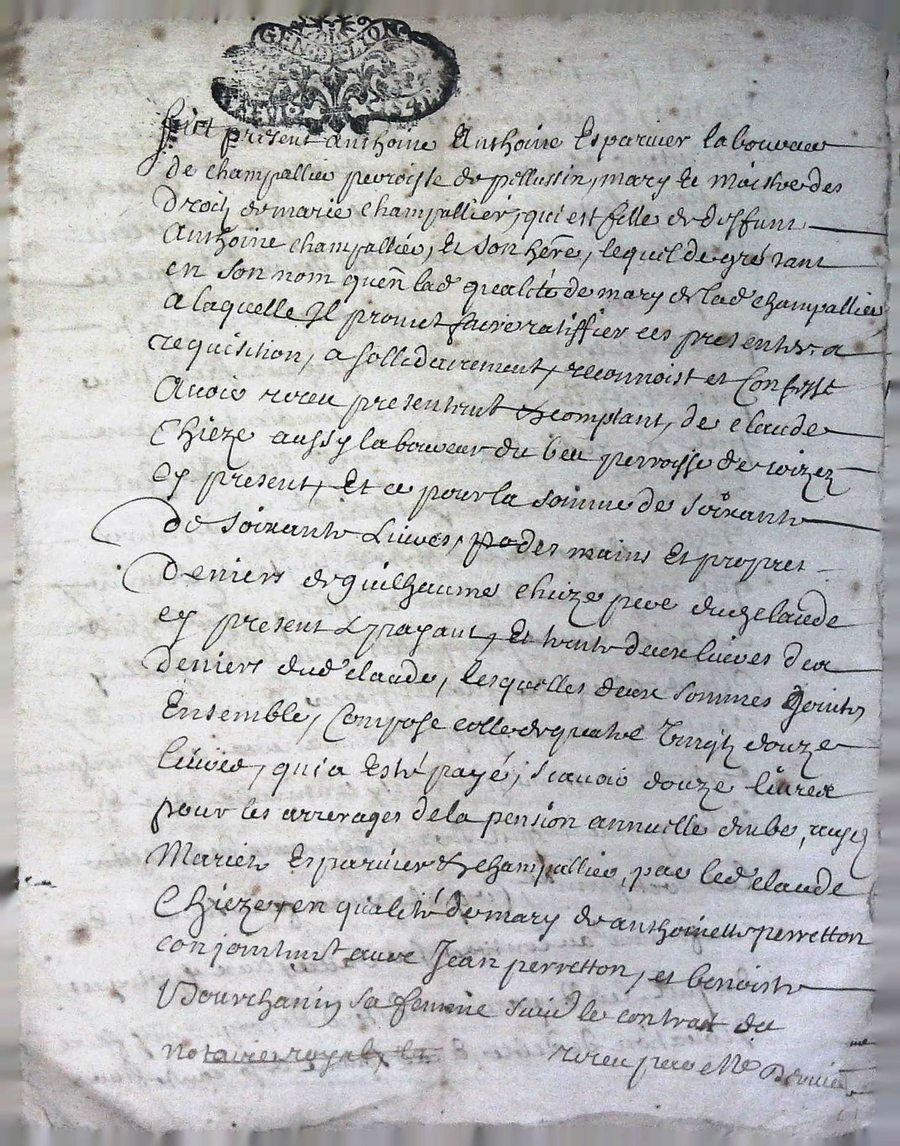 GEN DE LION
fut present Anthoine Anthoine Esparvier laboureur
de champallier perroisse de pellussin, mary et Maistre des
droitz de marie champallier, qui est fille de deffunt
Anthoine champallier, et son here, lequel de gré tant
en son nom quen lad qualité de mary de lad champallier
a laquelle Il promet faire ratiffier ces presentes a
requisition, a sollidairement, reconnoist et Confesse
Avoir receu presentement comptant, de claude
Chieze aussy laboureur du lieu perroisse de
cy present, Et ce pour la somme de soixante
de soixante Livres, des mains Et propres
deniers de guilhaume chieze pere dud claude
cy present & payant, Et trente deux livres des
deniers dud claude, lesquelles deux sommes Jointes
Ensemble, Compose celle de quatre vingtz douze
livres, qui a Esté payé, scavoir douze livres
pour les arrerages de la pension annuelle deube, auxd
Mariés Esparvier & champallier, par led claude
Chieze, en qualité de mary de anthoinette perretton
conjointement avec Jean perretton, et benoiste
Bourchanin sa femme suivt le contrat du
notaire royal, receu par Me